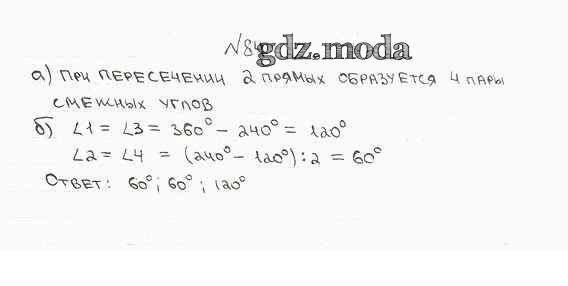 № 84 gdz.moda
а) ПРИ ПЕРЕСЕЧЕНИИ 2 ПРЯМЫХ ОБРАЗУЕТСЯ 4 ПАРЫ
СМЕЖНЫХ УГЛОВ
б) ∠1 = ∠3 = 360° - 240° = 120°
∠2 = ∠4 = (240° - 120°) : 2 = 60°
ОТВЕТ: 60°; 60°; 120°